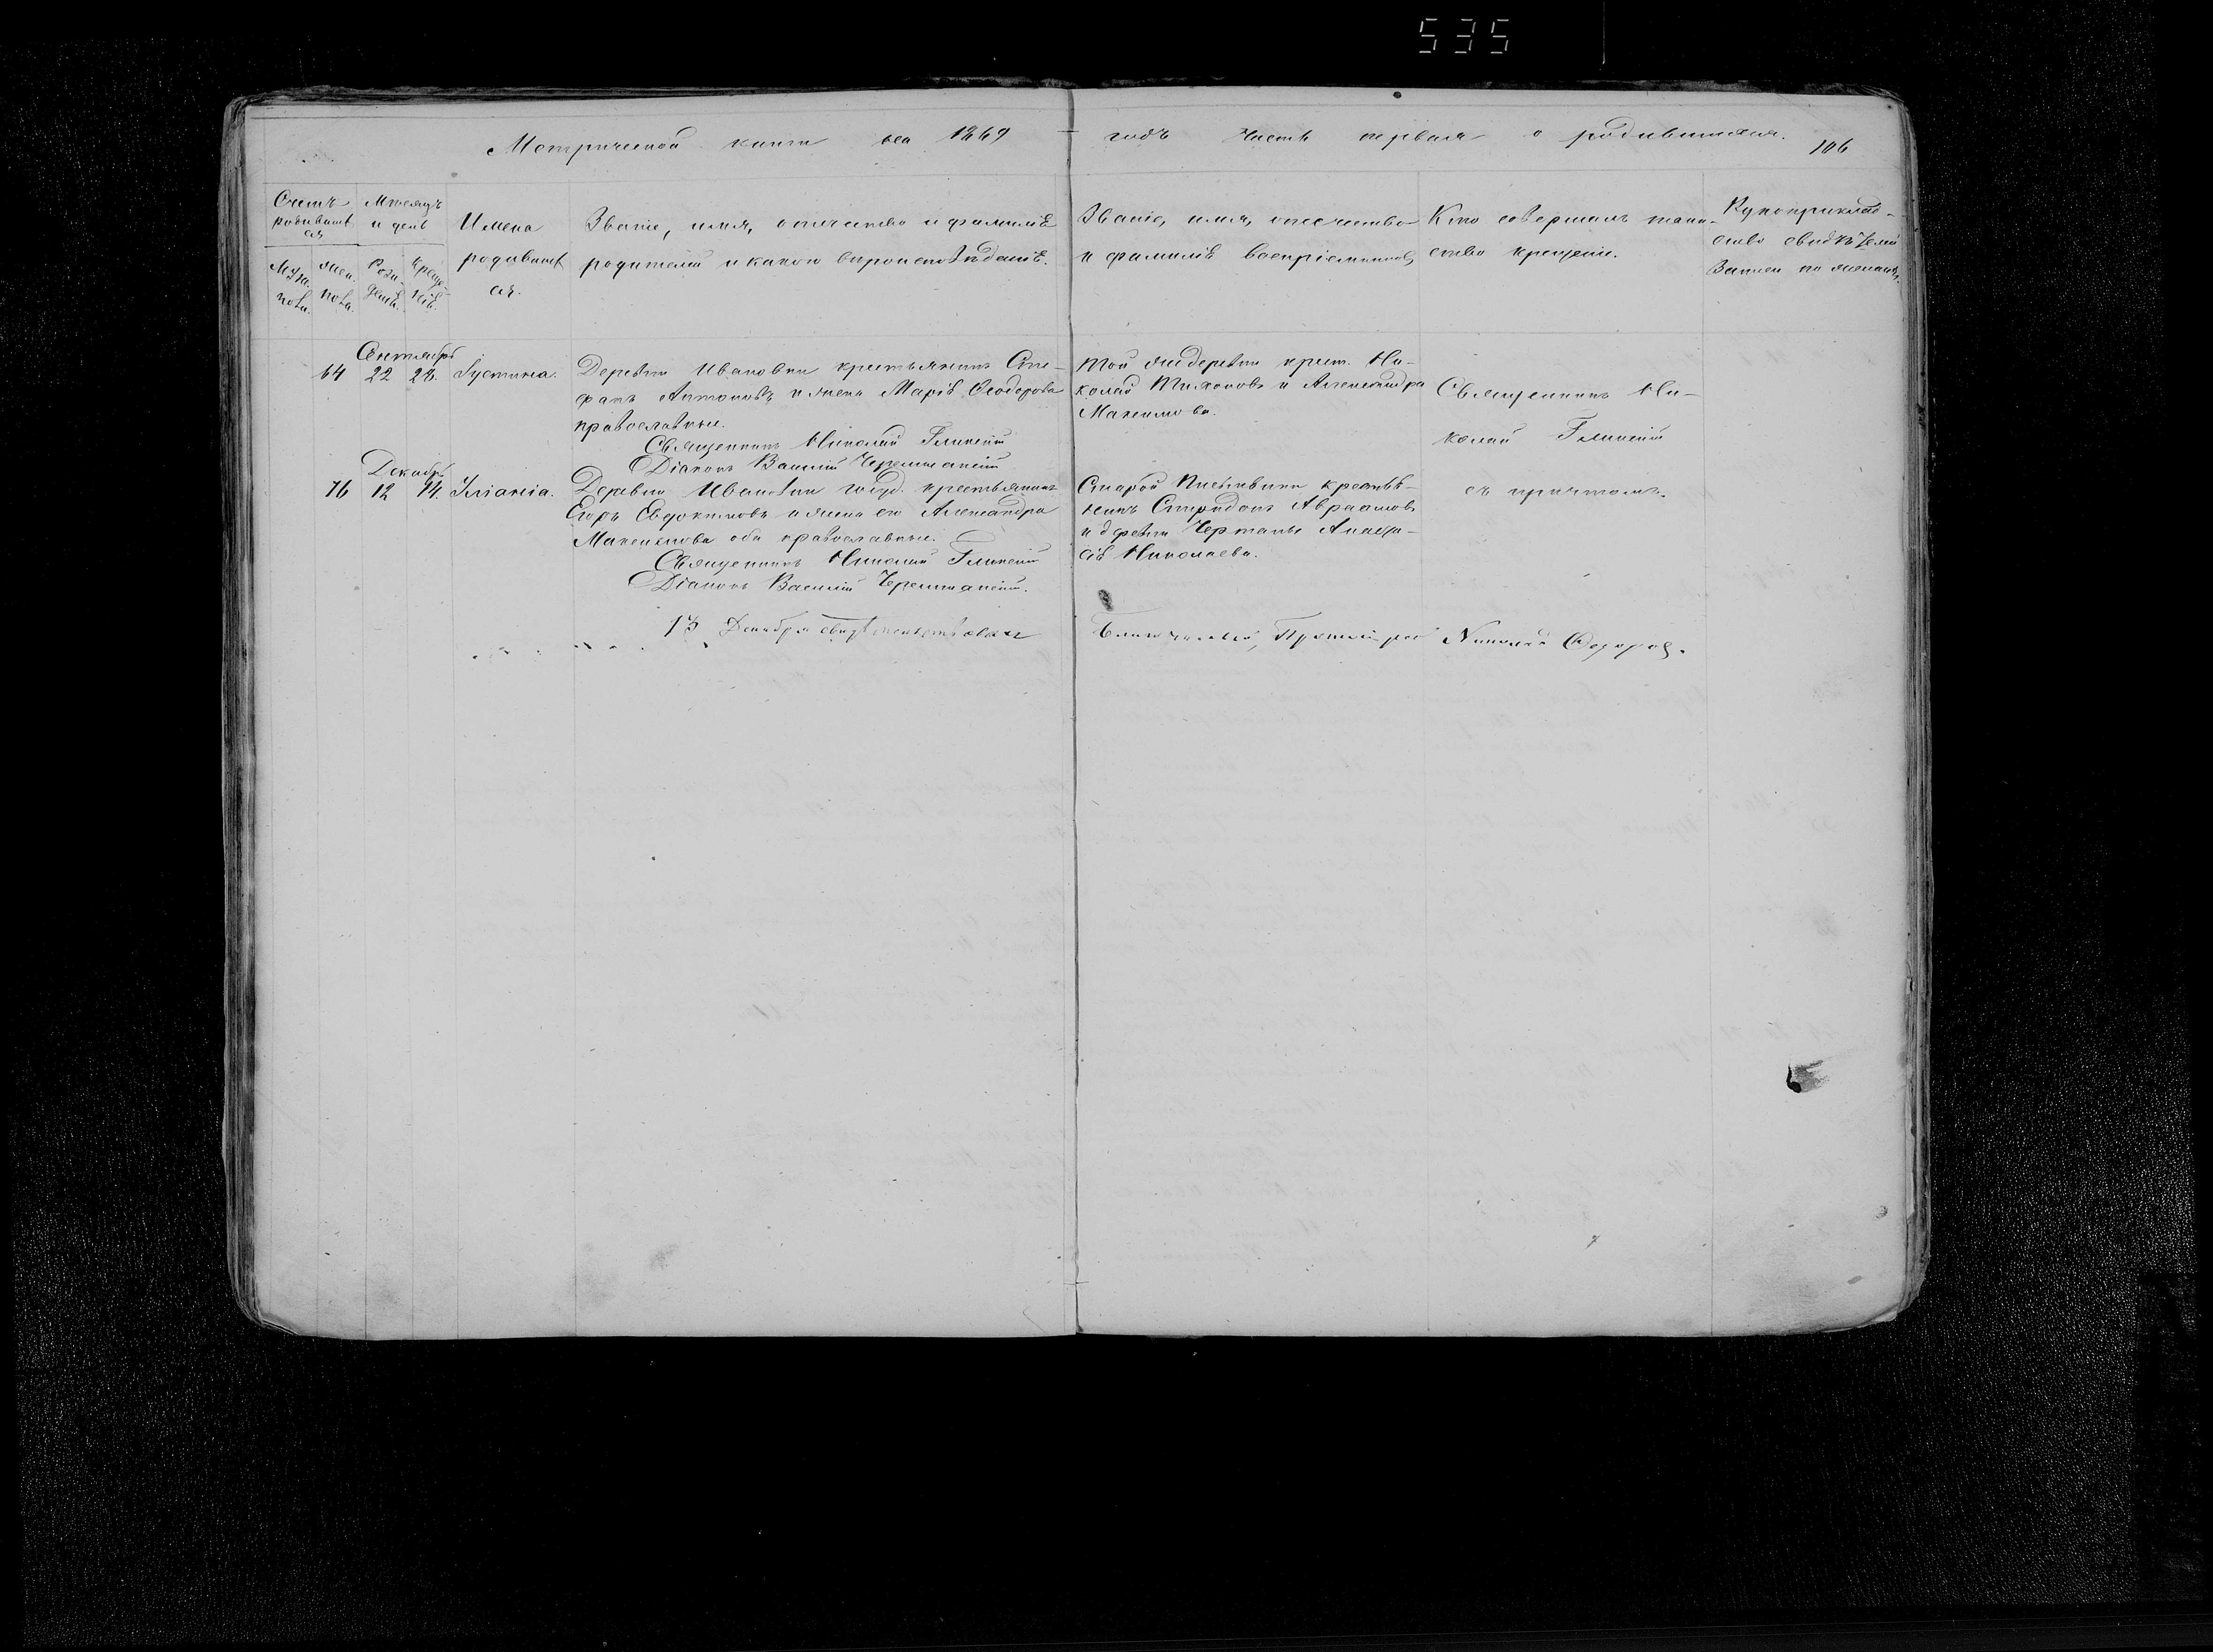 535
Метрической книги на 1869 годъ часть первая о родившихся.
106
Счетъ родившихся
Мѣсяцъ и день
Имена родившихся.
Званіе, имя, отчество и фамилія
родителей и какого вѣроисповѣданія.
Званіе, имя, отчество
и фамилія воспріемниковъ
Кто совершалъ таинство крещенія.
Рукоприкладство свидѣтелей
записи по желанію.
Муж. пола.
жен. пола.
Рожденія.
Крещенія.
Сентябрь
64 22 28. Іустина.
Деревни Ивановки крестьянинъ Сте-
фанъ Антоновъ и жена Марія Ѳеодорова
православные.
Священникъ Николай
Діаконъ Василій Черемшанскій
той же деревни крест. Ни-
колай Тихоновъ и Александра
Максимова.
Священникъ Ни-
колай
съ причтомъ.
Декабрь
76 12 14. Іуліанія.
Деревни Ивановки госуд. крестьянинъ
Егоръ Евдокимовъ и жена его Александра
Максимова оба православные.
Священникъ Николай
Діаконъ Василій Черемшанскій.
Старой Письмянки крестья-
нинъ Спиридонъ Авраамовъ
и деревни Чертаны Анаста-
сія Николаева.
13 Декабря свидѣтельствовалъ Благочинный, Протоіерей Николай Ѳедоров.